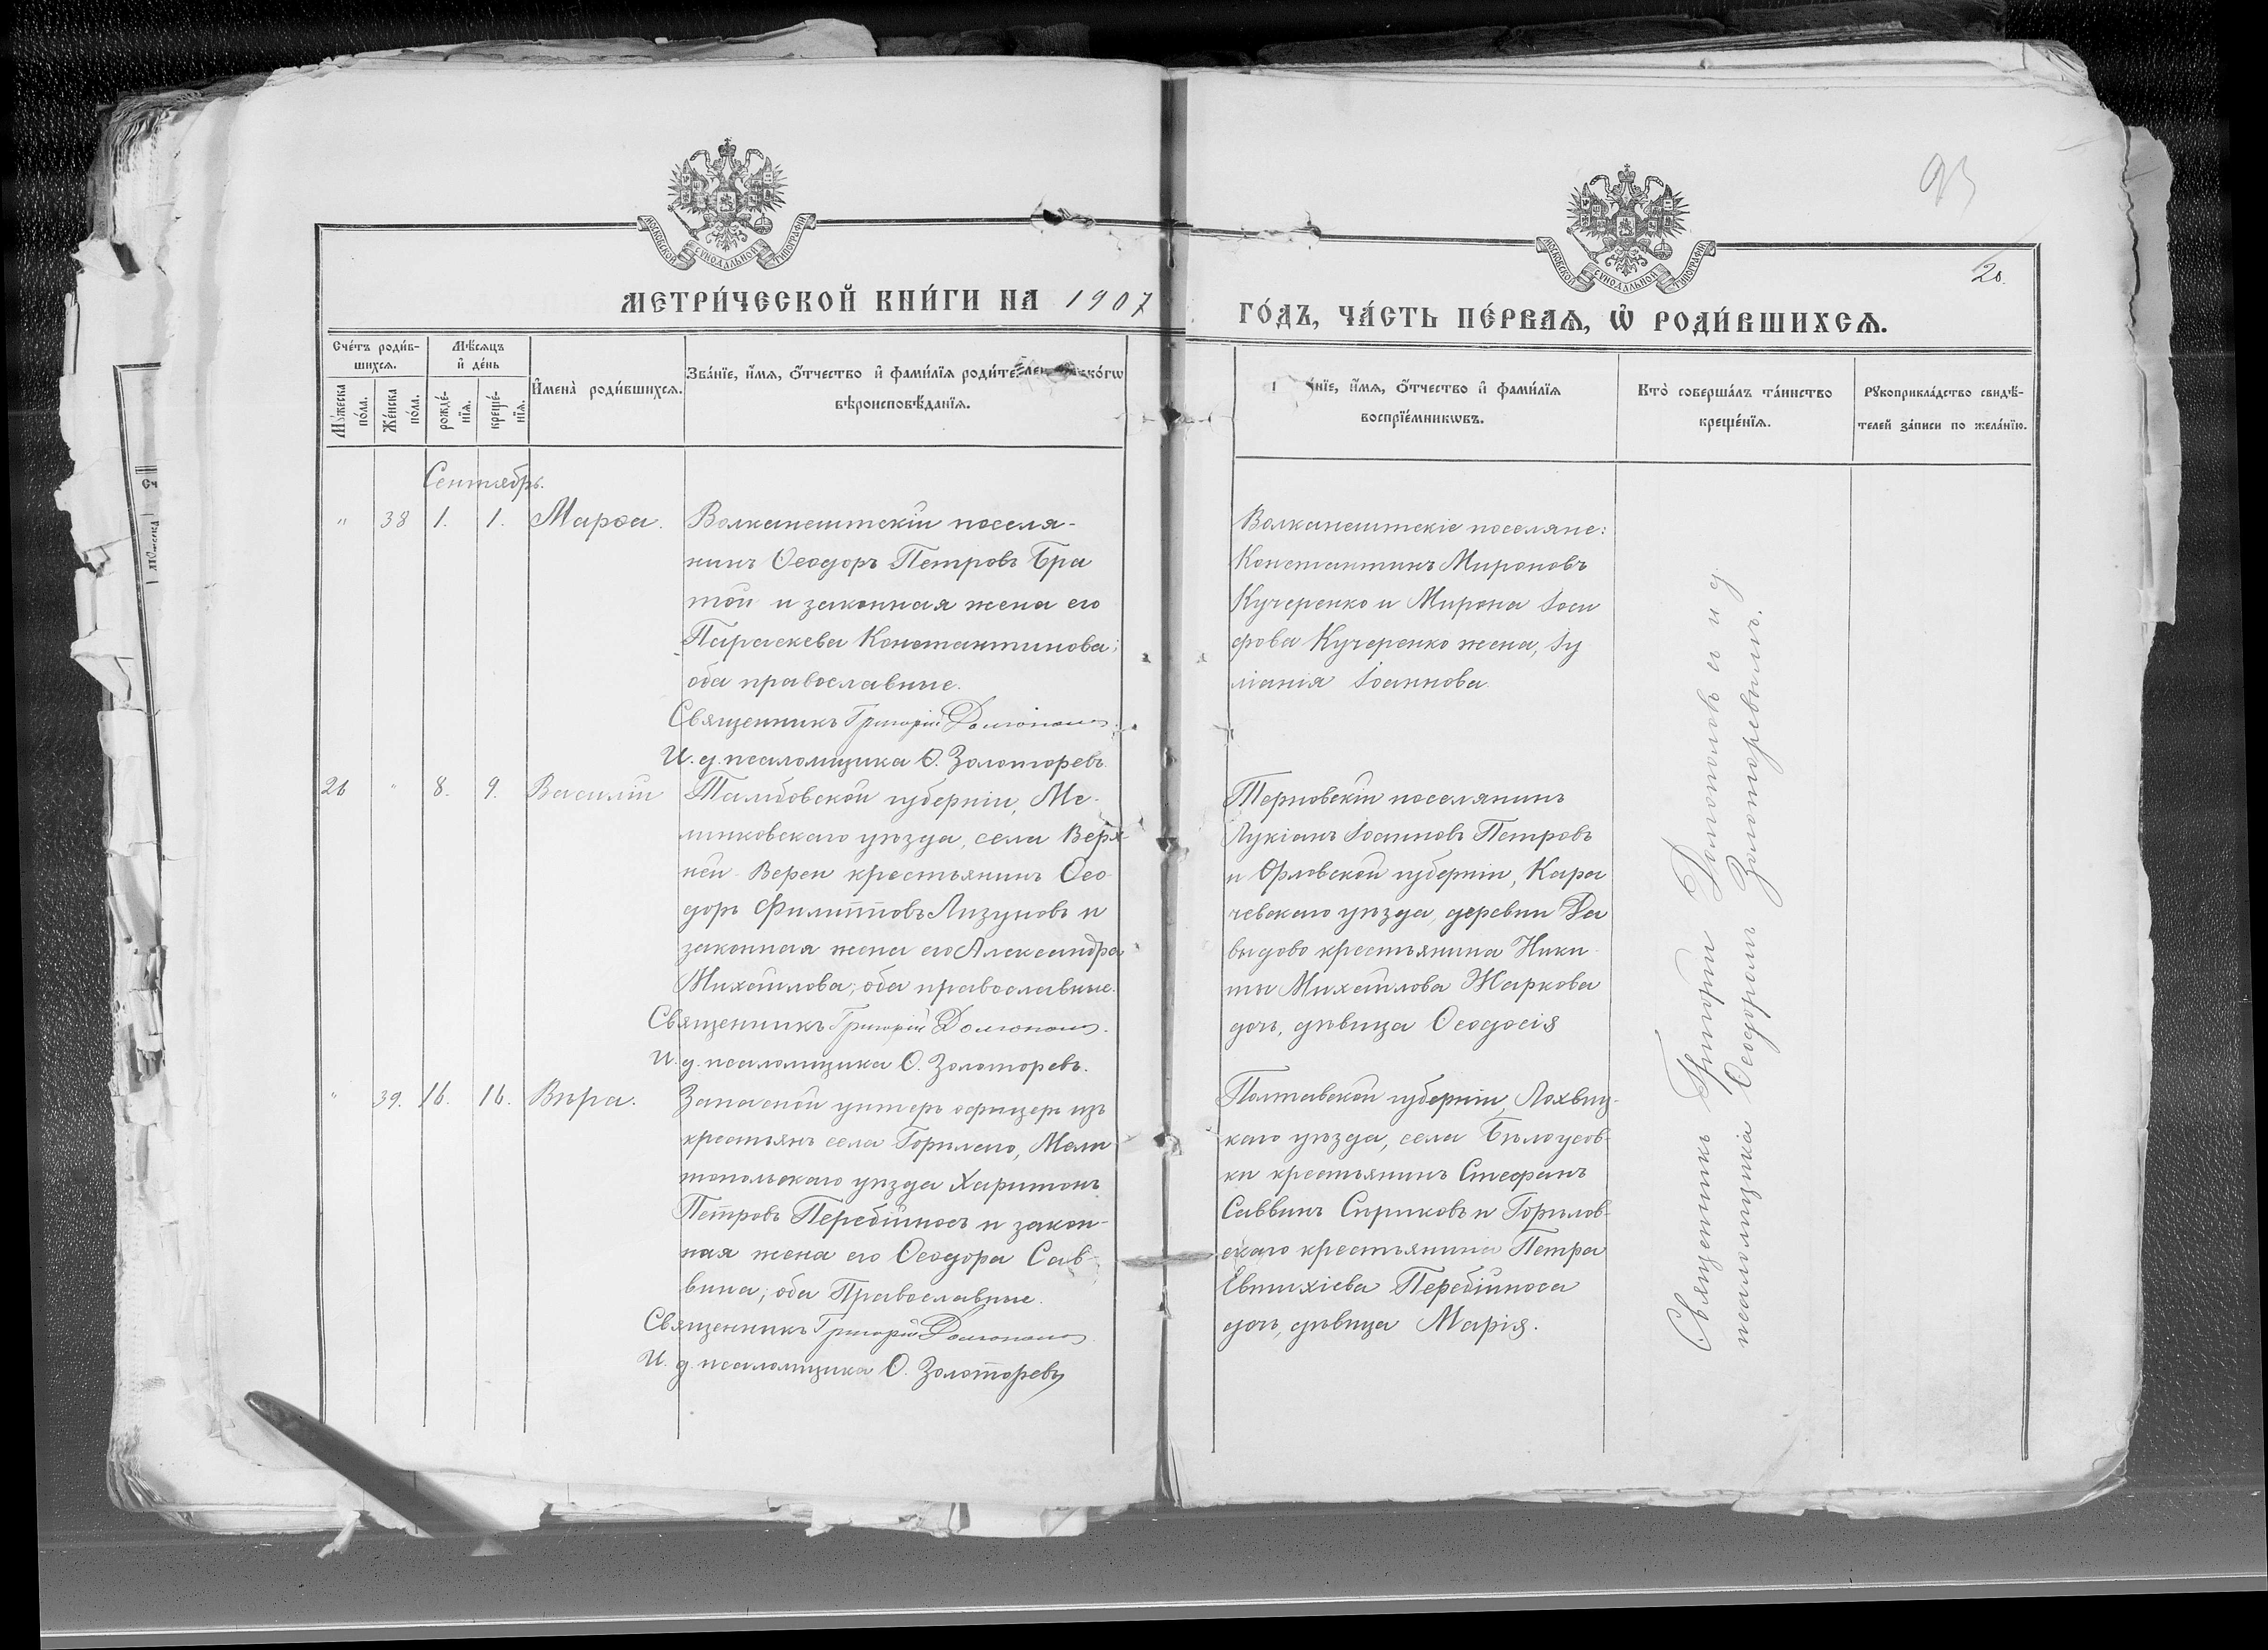 93
20.
МОСКОВСКОЙ СѴНОДАЛЬНОЙ ТИПОГРАФІИ
МОСКОВСКОЙ СѴНОДАЛЬНОЙ ТИПОГРАФІИ
МЕТРИ́ЧЕСКОЙ КНИ́ГИ НА 1907
ГО́ДЪ, ЧА́СТЬ ПЕ́РВАѦ, Ѽ РОДИ́ВШИХСѦ.
Сче́тъ роди́в-
шихсѧ.
Мꙋ́жеска
по́ла.
Же́нска
по́ла.
Мѣ́сѧцъ
и҆ де́нь
рожде́-
нїѧ.
креще́-
нїѧ.
И҆мена̀ роди́вшихсѧ.
Зва́нїе, и҆́мѧ, ѻ҆́тчество и҆ фами́лїѧ роди́телей
вѣроисповѣ́данїѧ.
и҆́мѧ, ѻ҆́тчество и҆ фами́лїѧ
воспрїе́мникѡвъ.
Кто̀ соверша́лъ та́инство
креще́нїѧ.
Рꙋкоприкла́дство свидѣ́-
телей за́писи по жела́нїю.
Сентябрь.
" 38 1. 1. Марѳа.
Волканештскій поселя-
нинъ Ѳеодоръ Петровъ Бра
той и законная жена его
Параскева Константинова;
оба православные.
Священникъ Григорій Долгополъ
И. д. псаломщика Ѳ. Золоторевъ.
Волканештскіе поселяне:
Константинъ Мироновъ
Кучеренко и Мирона Іоси
фова Кучеренко жена, Іу
ліанія Іоаннова
26 " 8. 9. Василій
Тамбовской губерніи,
уѣзда, села Верх-
ней Верен крестьянинъ Ѳео
доръ Филипповъ Лизуновъ и
законная жена его Александра
Михайлова; оба православные.
Священникъ Григорій Долгополъ.
И. д. псаломщика Ѳ. Золоторевъ.
Терновскій поселянинъ
Лукіанъ Іоанновъ Петровъ
и Орловской губерніи, Кара
чевскаго уѣзда, деревни Да
выдово крестьянина Ники
ты Михайлова Жаркова
дочь, дѣвица Ѳеодосія
" 39. 16. 16. Вѣра.
Запасной унтеръ офицеръ изъ
крестьянъ села Горѣлаго, Мели
топольскаго уѣзда Харитонъ
Петровъ Перебійносъ и закон-
ная жена его Ѳеодора Сав-
вина; оба Православные.
Священникъ Григорій Долгополъ
И. д. псаломщика Ѳ. Золоторевъ
Полтавской губерніи, Лохвиц-
каго уѣзда, села Бѣлоусов-
ки крестьянинъ Стефанъ
Саввинъ Сириковъ и Горѣлов-
скаго крестьянина Петра
Евтихіева Перебійноса
дочь, дѣвица Марія.
Священникъ Григорій Долгополъ съ и. д.
псаломщика Ѳеодоромъ Золоторевымъ.